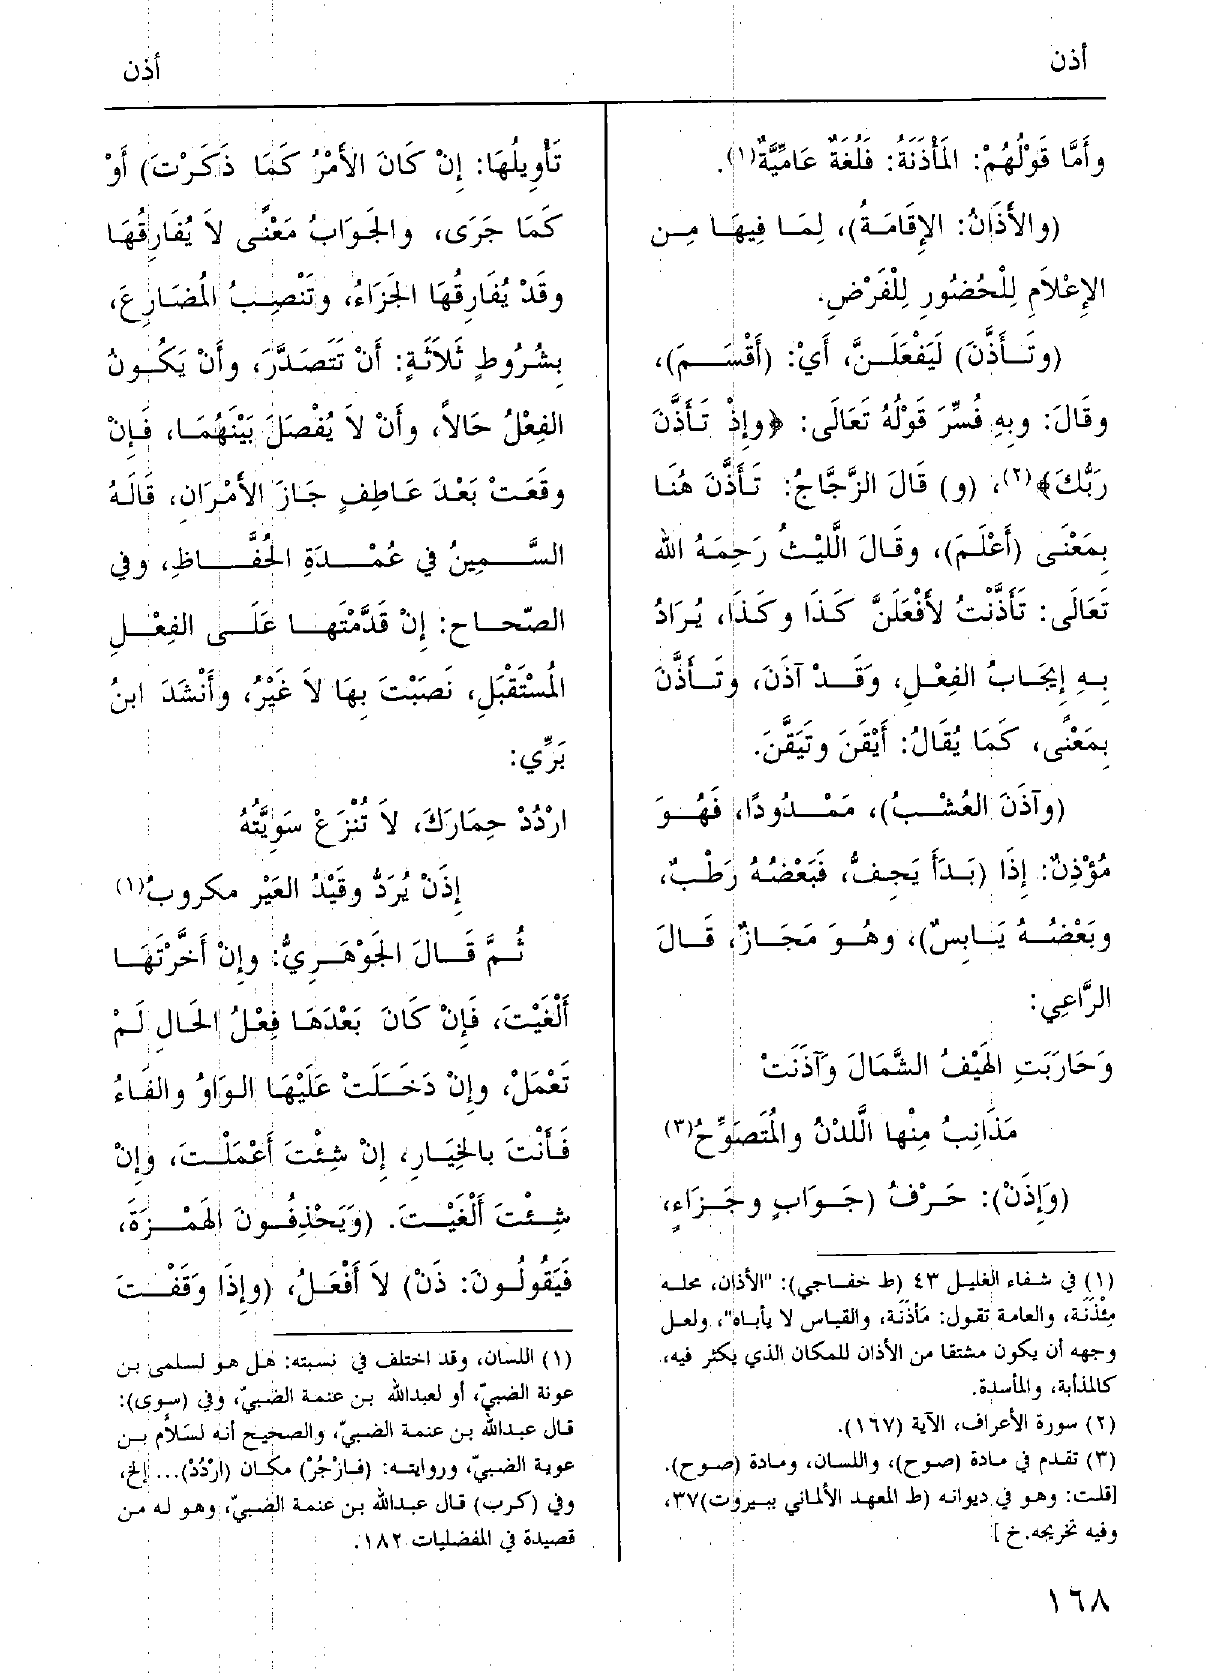 أذن
أذن
وأَمَّا قَوْلُهُمْ: المَأْذَنَةُ: فَلُغَةٌ عَامِّيَّةٌ(١).
(والأَذَانُ: الإِقَامَةُ)، لِمَا فِيهَا مِن
الإِعْلاَمِ لِلْحُضُورِ لِلْفَرْضِ.
(وتَأَذَّنَ) لَيَفْعَلَنَّ، أَيْ: (أَقْسَمَ)،
وقَالَ: وبِهِ فُسِّرَ قَوْلُهُ تَعَالَى: ﴿وإِذْ تَأَذَّنَ
رَبُّكَ﴾(٢)، (و) قَالَ الزَّجَّاجُ: تَأَذَّنَ هُنَا
بِمَعْنَى (أَعْلَمَ)، وقَالَ الَّليْثُ رَحِمَهُ الله
تَعَالَى: تَأَذَّنْتُ لأَفْعَلَنَّ كَذَا وكَذَا، يُرَادُ
بِهِ إِيجَابُ الفِعْلِ، وَقَدْ آذَنَ، وتَأَذَّنَ
بِمَعْنًى، كَمَا يُقَالُ: أَيْقَنَ وتَيَقَّنَ.
(وآذَنَ العُشْبُ)، مَمْدُودًا، فَهُوَ
مُؤْذِنٌ: إِذَا (بَدَأَ يَجِفُّ، فَبَعْضُهُ رَطْبٌ،
وبَعْضُهُ يَابِسٌ)، وهُوَ مَجَازٌ، قَالَ
الرَّاعِي:
وَحَارَبَتِ الهَيْفُ الشَّمَالَ وَآذَنَتْ
مَذَانِبُ مِنْها الَّلدْنُ والمُتَصَوِّحُ(٣)
(وَإِذَنْ): حَرْفُ (جَوَابٍ وجَزَاءٍ،
(١) في شفاء الغليل ٤٣ (ط خفاجي): "الأذان، محله
مِئْذَنَة، والعامة تقول: مَأذَنَة، والقياس لا يأباه"، ولعل
وجهه أن يكون مشتقا من الأذان للمكان الذي يكثر فيه،
كالمذأبة، والمأسدة.
(٢) سورة الأعراف، الآية (١٦٧).
(٣) تقدم في مادة (صوح)، واللسان، ومادة (صوح).
[قلت: وهو في ديوانه (ط المعهد الألماني ببيروت)٣٧،
وفيه تخريجه.خ]
تَأْوِيلُهَا: إِنْ كَانَ الأَمْرُ كَمَا ذَكَرْتَ) أَوْ
كَمَا جَرَى، والجَوَابُ مَعْنًى لاَ يُفَارِقُهَا
وقَدْ يُفَارِقُهَا الجَزَاءُ، وتَنْصِبُ المُضَارِعَ،
بِشُرُوطٍ ثَلاَثَةٍ: أَنْ تَتَصَدَّرَ، وأَنْ يَكُونَ
الفِعْلُ حَالاً، وأَنْ لاَ يُفْصَلَ بَيْنَهُمَا، فَإِنْ
وقَعَتْ بَعْدَ عَاطِفٍ جَازَ الأَمْرَانِ، قَالَهُ
السَّمِينُ في عُمْدَةِ الحُفَّاظِ، وفي
الصّحاح: إِنْ قَدَّمْتَها عَلَى الفِعْلِ
المُسْتَقْبَلِ، نَصَبْتَ بِهَا لاَ غَيْرُ، وأَنْشَدَ ابنُ
بَرِّي:
ارْدُدْ حِمَارَكَ، لاَ تُنْزَعْ سَوِيَّتُهُ
إِذَنْ يُرَدُّ وقَيْدُ العَيْرِ مكروبُ(١)
ثُمَّ قَالَ الجَوْهَرِيُّ: وإِنْ أَخَّرْتَهَا
أَلْغَيْتَ، فَإِنْ كَانَ بَعْدَهَا فِعْلُ الحَالِ لَمْ
تَعْمَلْ، وإِنْ دَخَلَتْ عَلَيْهَا الوَاوُ والفَاءُ
فَأَنْتَ بالخِيَارِ، إِنْ شِئْتَ أَعْمَلْتَ، وإِنْ
شِئْتَ أَلْغَيْتَ. (وَيَحْذِفُونَ الهَمْزَةَ،
فَيَقُولُونَ: ذَنْ) لاَ أَفْعَلُ، (وإِذَا وَقَفْتَ
(١) اللسان، وقد اختلف في نسبته: هل هو لسلمى بن
عونة الضبيّ، أو لعبدالله بن عنمة الضبيّ، وفي (سوى):
قال عبدالله بن عنمة الضبيّ، والصحيح أنه لسَلاَّم بن
عوية الضبيّ، وروايته: (فازْجُرْ) مكان (ارْدُدْ)... إلخ،
وفي (كرب) قال عبدالله بن عنمة الضبيّ، وهو له من
قصيدة في المفضليات ١٨٢.
١٦٨